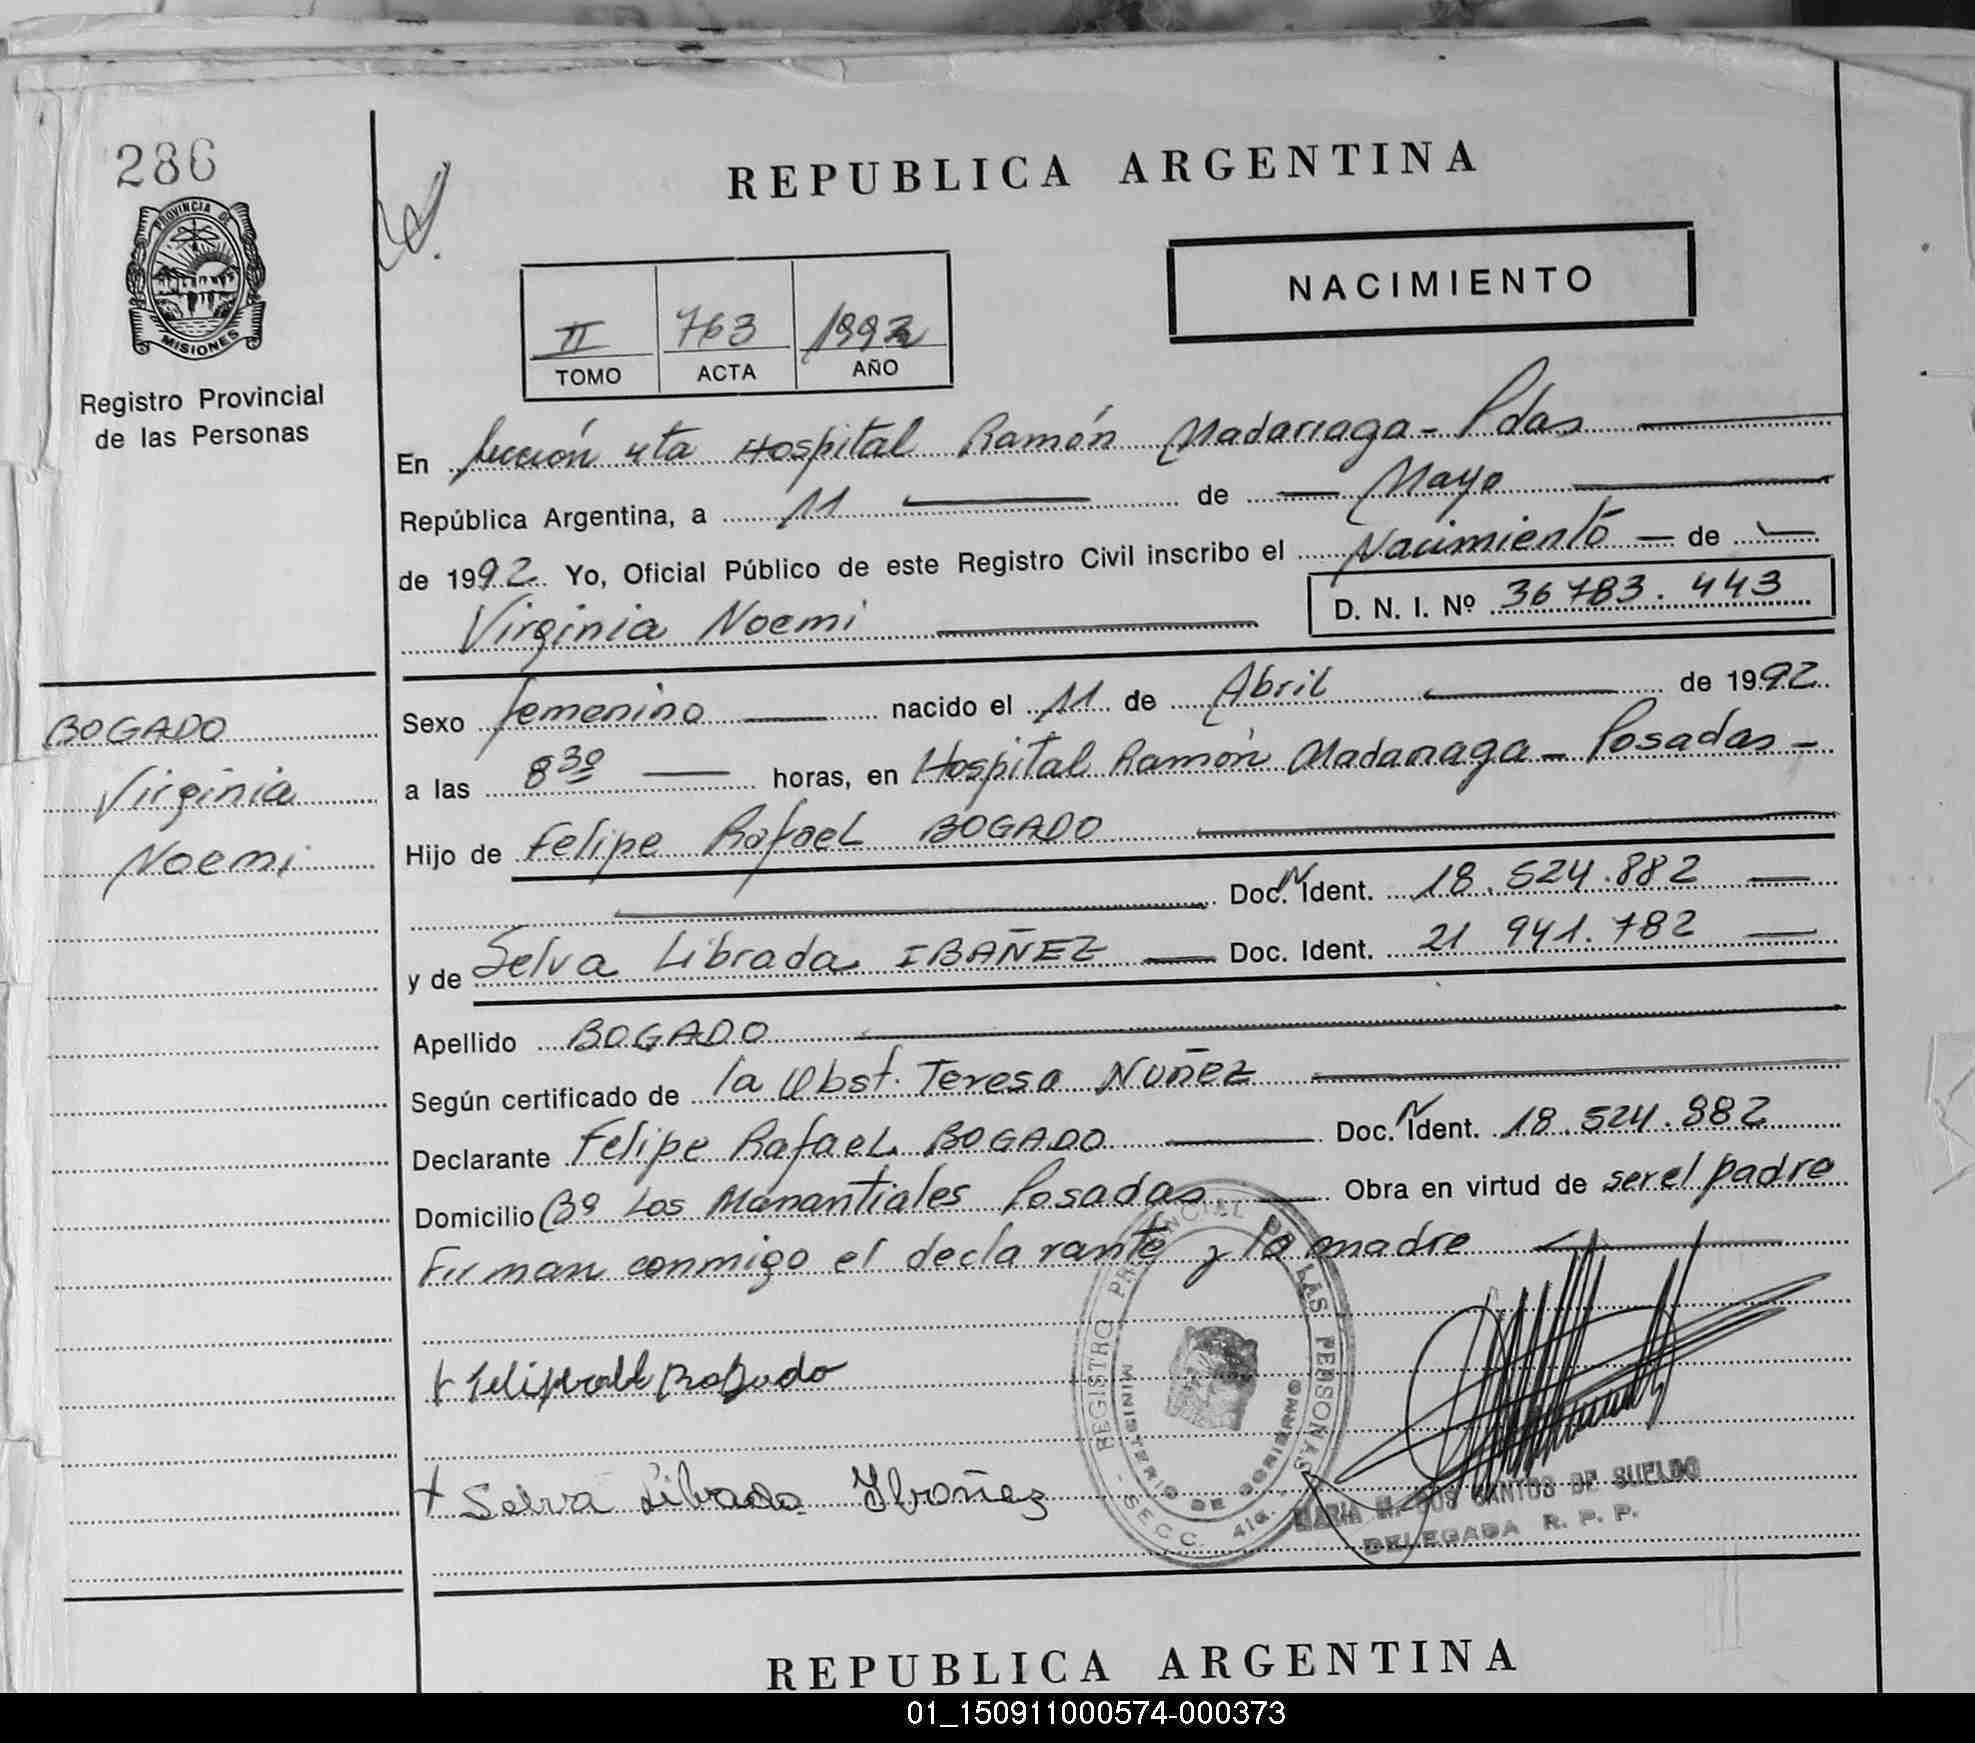 286
PROVINCIA DE
MISIONES
Registro Provincial
de las Personas
REPUBLICA ARGENTINA
NACIMIENTO
II 763 1992
TOMO ACTA AÑO
En Sección 4ta Hospital Ramón Madariaga - Pdas
República Argentina, a 11 de Mayo
de 1992 Yo, Oficial Público de este Registro Civil inscribo el Nacimiento de
Virginia Noemi D. N. I. Nº 36783.443
BOGADO
Virginia
Noemi
Sexo femenino nacido el 11 de Abril de 1992
a las 8 30 horas, en Hospital Ramón Madariaga - Posadas -
Hijo de Felipe Rafael BOGADO
Doc. Ident. 18.524.882
y de Selva Librada IBAÑEZ Doc. Ident. 21 941.782
Apellido BOGADO
Según certificado de la Obst. Teresa NUÑEZ
Declarante Felipe Rafael BOGADO Doc. Ident. 18.524.882
Domicilio Bº Los Manantiales Posadas Obra en virtud de ser el padre
Firman conmigo el declarante y la madre
REGISTRO PROVINCIAL DE LAS PERSONAS
MINISTERIO DE GOBIERNO
- SECC. 4ta. -
Selva Librada Ibañez
MARIA M. DOS SANTOS DE SUELDO
DELEGADA R. P. P.
REPUBLICA ARGENTINA
01_150911000574-000373